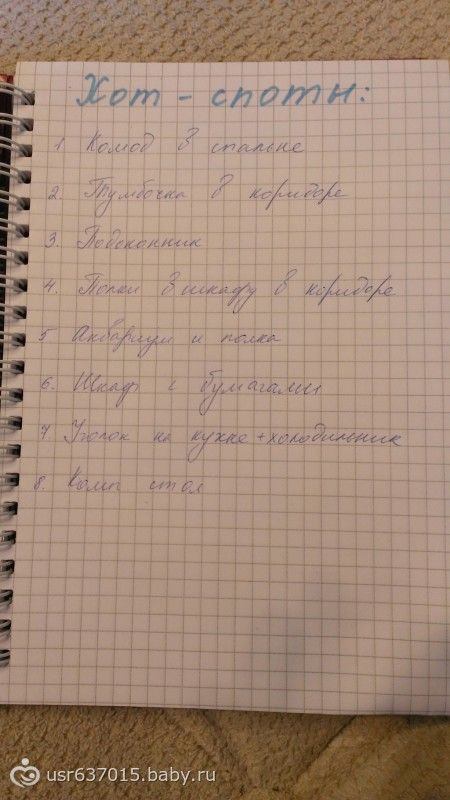 Хот - споты:
1 Комод в спальне
2. Тумбочка в коридоре
3. Подоконник
4. Полки в шкафу в коридоре
5 Аквариум и полка
6. Шкаф с бумагами
7. Уголок на кухне + холодильник
8. Комп стол
usr637015.baby.ru